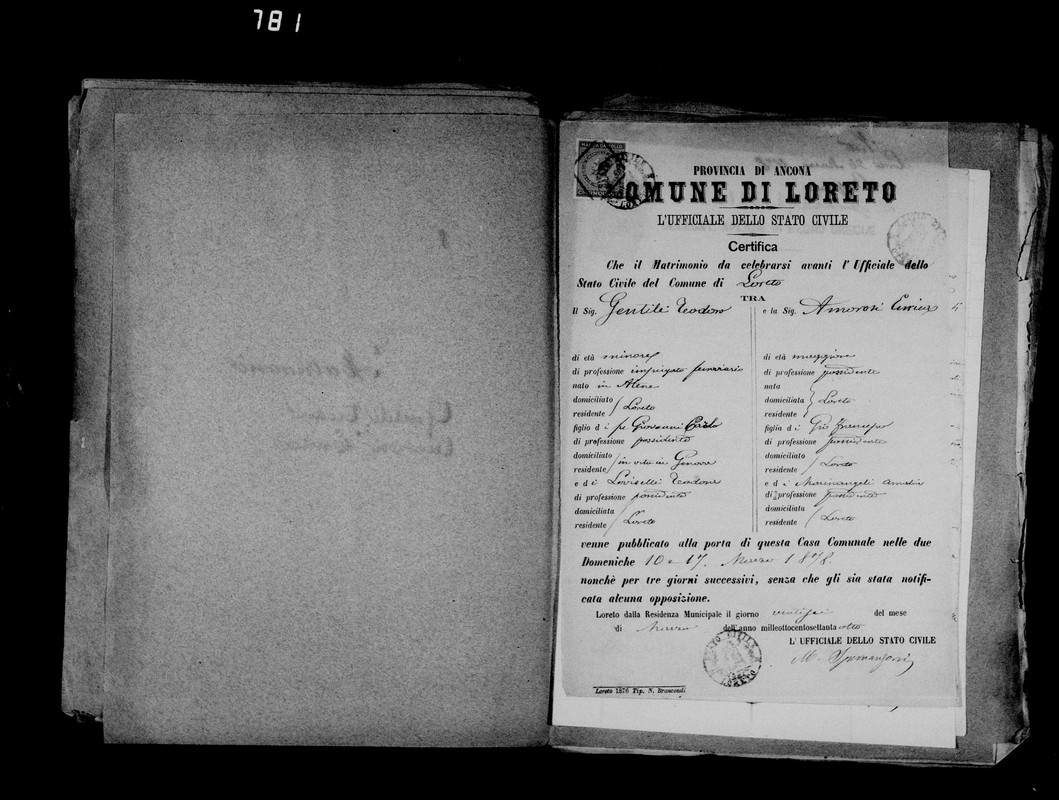 781
MARCA DA BOLLO
PROVINCIA DI ANCONA
COMUNE DI LORETO
L'UFFICIALE DELLO STATO CIVILE
Certifica
Che il Matrimonio da celebrarsi avanti l'Ufficiale dello
Stato Civile del Comune di Loreto
TRA
Il Sig. Gentili Teodoro
e la Sig. Amorosi Enrica
di età minore
di professione impiegato ferroviario
nato in Atene
domiciliato
residente Loreto
figlio di fu Giovanni Carlo
di professione possidente
domiciliato
residente in vita in Genova
e di Loviselli Teodora
di professione possidente
domiciliata
residente Loreto
di età maggiore
di professione possidente
nata
domiciliata Loreto
residente
figlia di Gio Francesco
di professione possidente
domiciliato
residente Loreto
e di Marinangeli Amalia
di professione possidente
domiciliata
residente Loreto
venne pubblicato alla porta di questa Casa Comunale nelle due
Domeniche 10 e 17 Marzo 1878.
nonchè per tre giorni successivi, senza che gli sia stata notifi-
cata alcuna opposizione.
Loreto dalla Residenza Municipale il giorno del mese
di Marzo dell'anno milleottocentosettanta otto
L'UFFICIALE DELLO STATO CIVILE
STATO CIVILE
LORETO
Loreto 1876 Tip. N. Brancondi